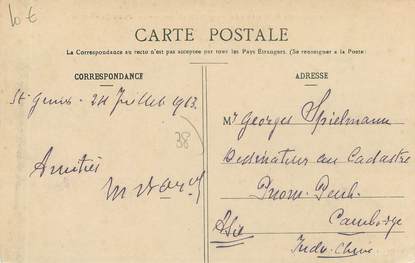 10 €
CARTE POSTALE
La Correspondance au recto n'est pas acceptée par tous les Pays Étrangers. (Se renseigner à la Poste)
CORRESPONDANCE
St Genis - 24 Juillet 1913.
38
Amitiés
ADRESSE
Mr Georges Spielmann
Dessinateur au Cadastre
Pnom-Penh
Cambodge
Asie
Indo-Chine